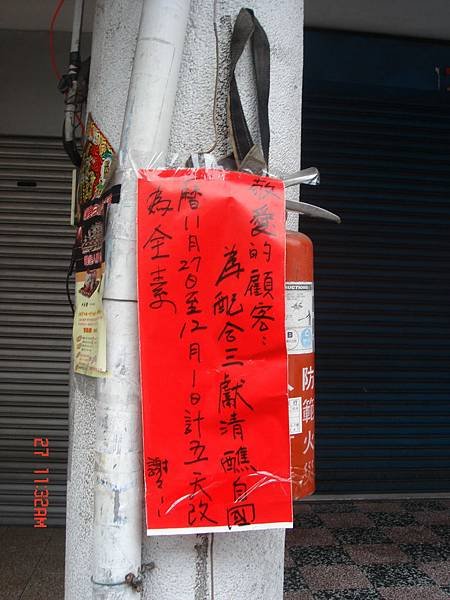 敬愛的顧客:
為配合三獻清醮自國
曆11月27日至12月1日計五天改
為全素
謝々!
防範火
27 11:32AM